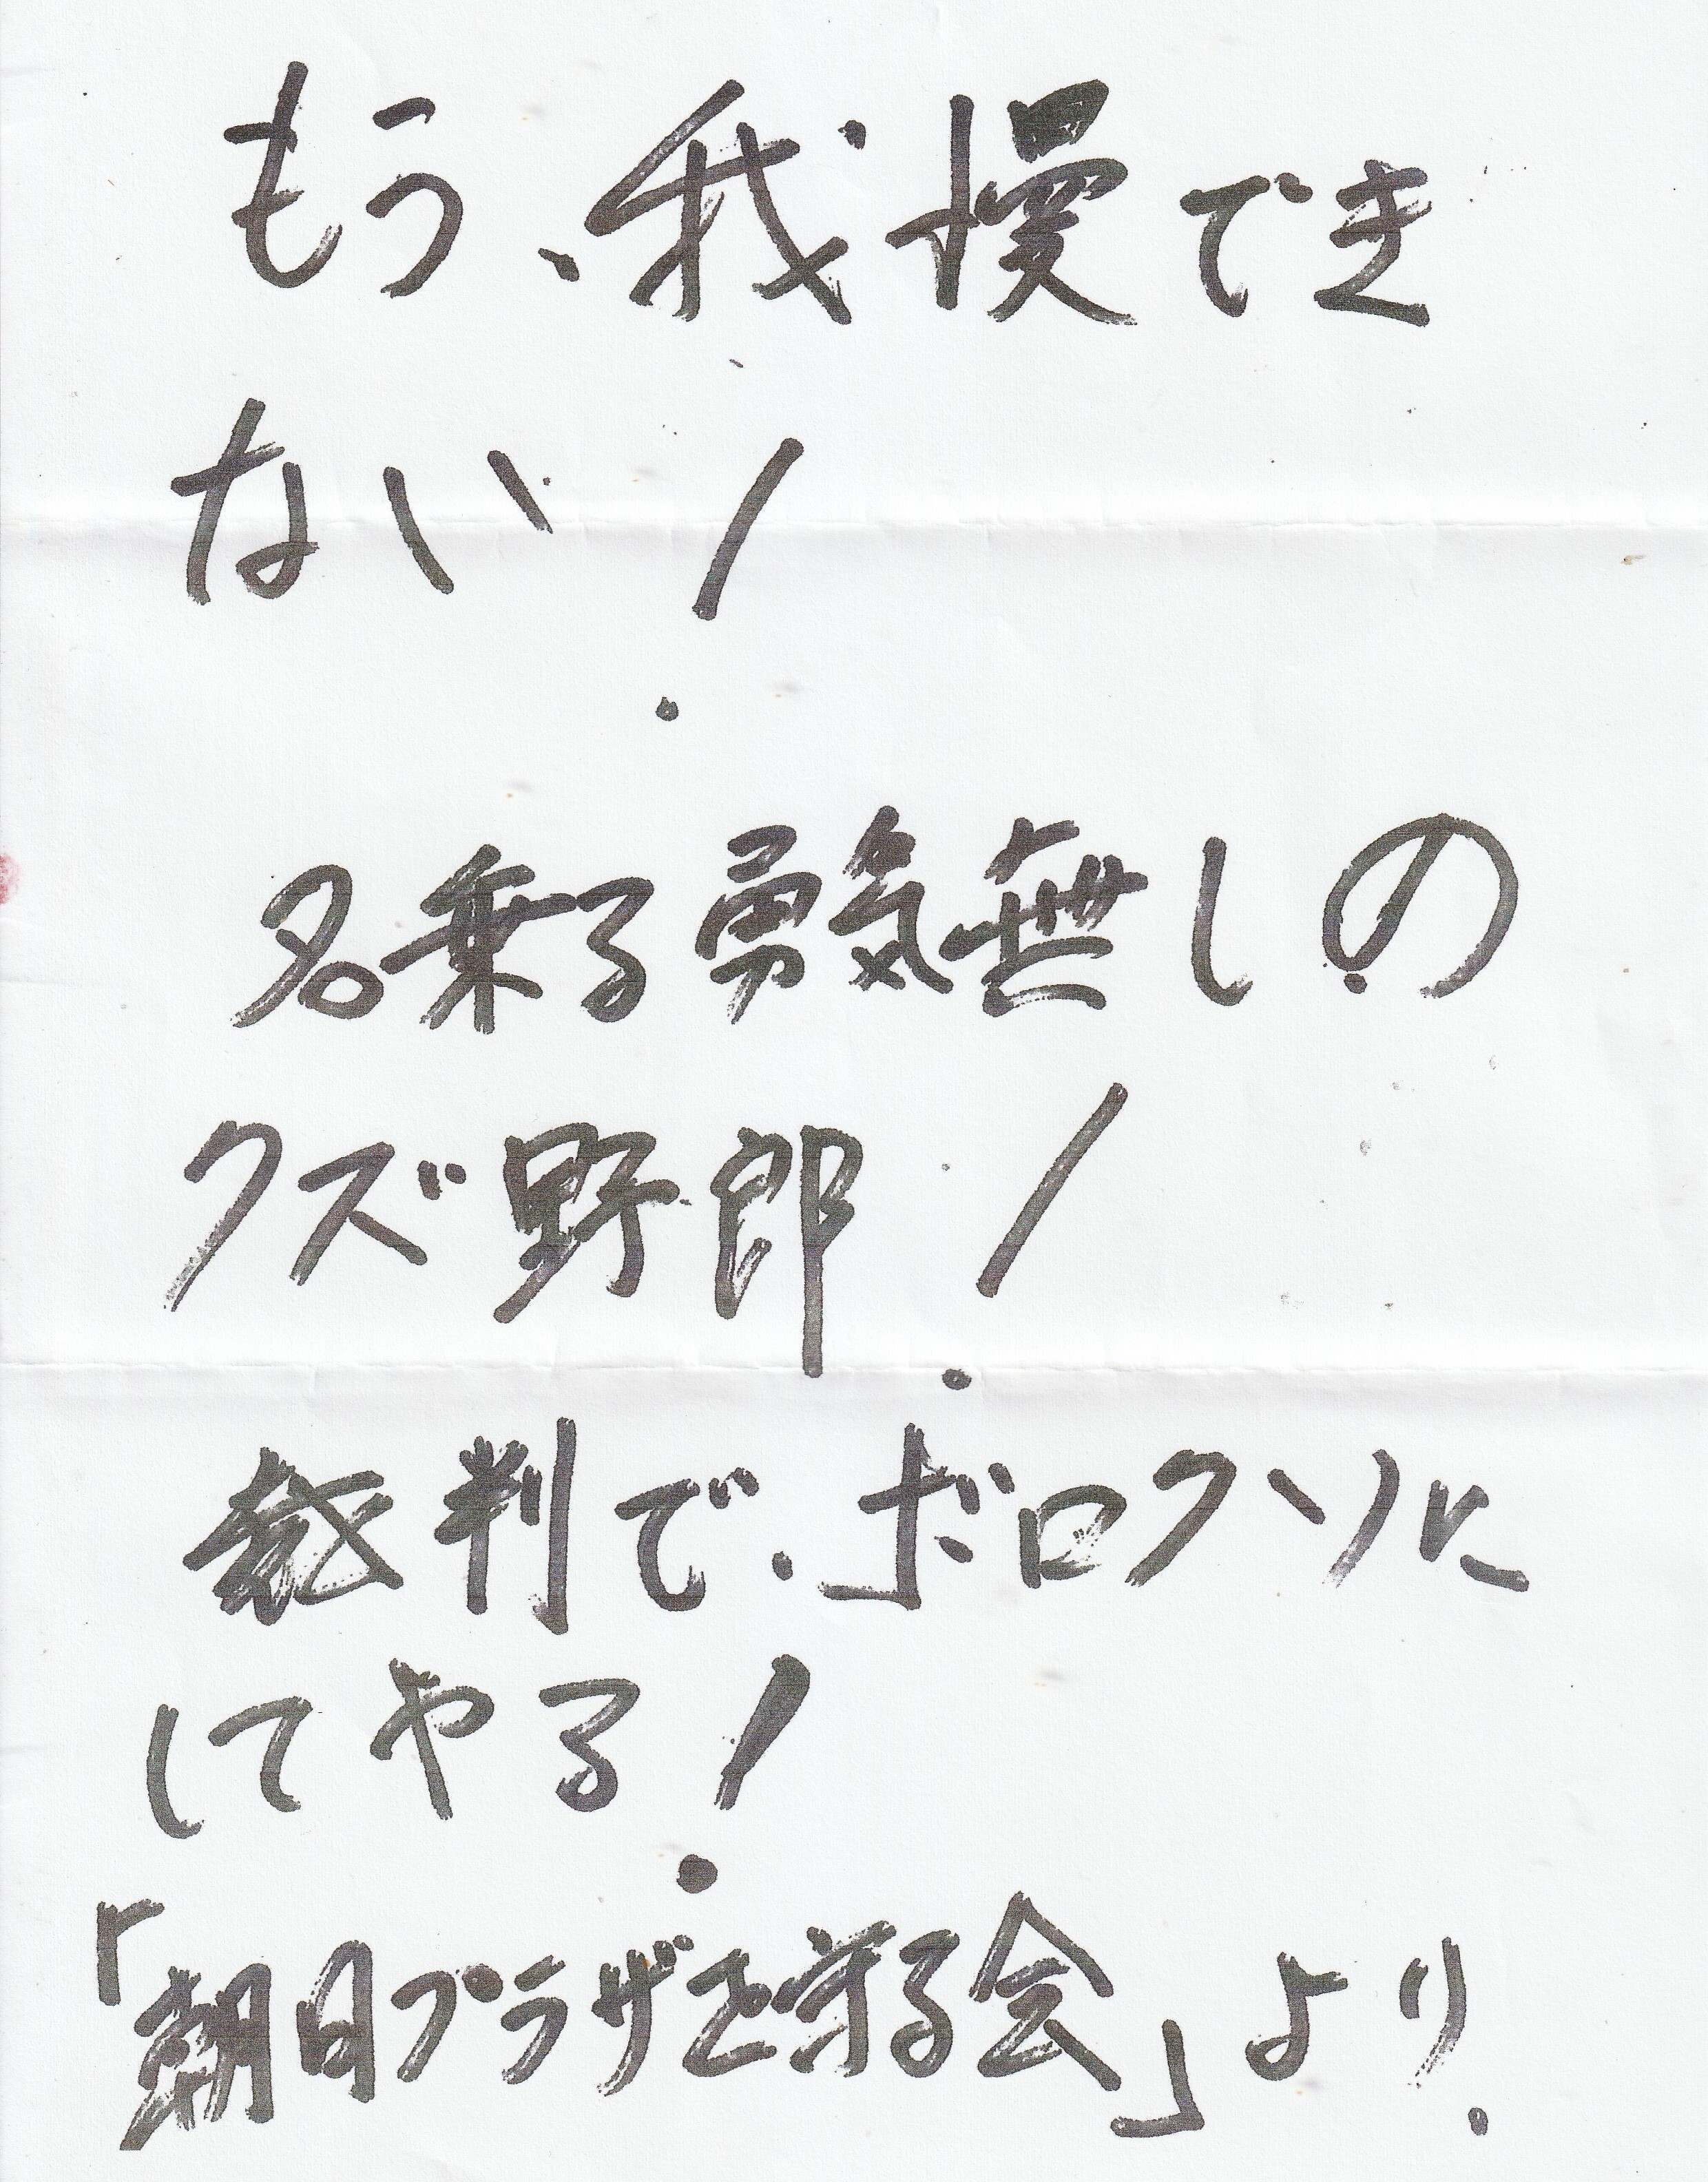 もう、我慢でき
ない!
名乗る勇気無しの
クズ野郎!
裁判で、ボロクソに
してやる!
「朝日プラザを守る会」より.